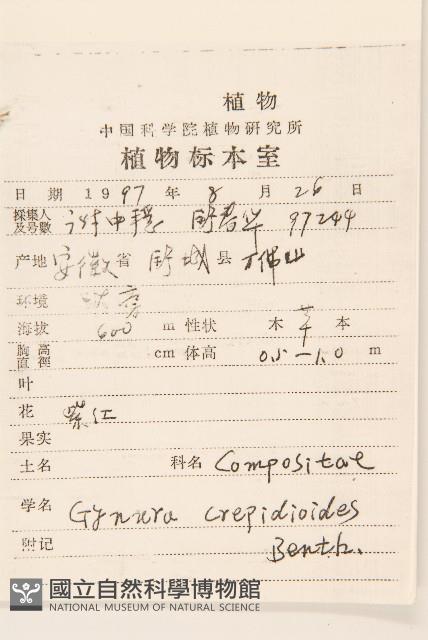 植物
中国科学院植物研究所
植物标本室
日期 1997年 8月 26日
採集人及号數 许中穆 舒春华 97244
产地 安徽省 舒城县 万佛山
环境
海拔 600 m 性状 木 草 本
胸高直徑 cm 体高 0.5—1.0 m
叶
花 紫红
果实
土名 科名 Compositae
学名 Gynura crepidioides
附记 Benth.
國立自然科學博物館
NATIONAL MUSEUM OF NATURAL SCIENCE